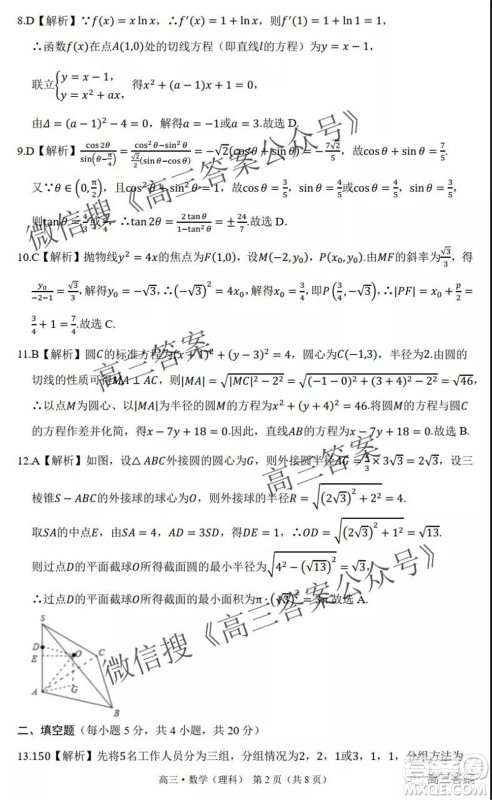 8.D【解析】∵f(x)=x ln x，∴f′(x)=1+ln x，则f′(1)=1+ln 1=1，
∴函数f(x)在点A(1,0)处的切线方程（即直线l的方程）为y=x−1，
联立{y=x−1, y=x²+ax, 得x²+(a−1)x+1=0，
由Δ=(a−1)²−4=0，解得a=−1或a=3.故选 D.
9.D【解析】cos2θ/sin(θ−π/4)=(cos²θ−sin²θ)/(√2/2(sinθ−cosθ))=−√2(cosθ+sinθ)=−7√2/5，故cosθ+sinθ=7/5.
又∵θ∈(0,π/2)，且cos²θ+sin²θ=1，故cosθ=3/5，sinθ=4/5或cosθ=4/5，sinθ=3/5，
则tanθ=4/3或3/4，∴tan2θ=2tanθ/(1−tan²θ)=±24/7.故选 D.
10.C【解析】抛物线y²=4x的焦点为F(1,0)，设M(−2,y₀)，P(x₀,y₀).由MF的斜率为√3/3，得
y₀/(−2−1)=√3/3，解得y₀=−√3，∴(−√3)²=4x₀，解得x₀=3/4，即P(3/4,−√3)，∴|PF|=x₀+p/2=
3/4+1=7/4.故选 C.
11.B【解析】圆C的标准方程为(x+1)²+(y−3)²=4，圆心为C(−1,3)，半径为2.由圆的
切线的性质可得MA⊥AC，则|MA|=√(|MC|²−2²)=√((−1−0)²+(3+4)²−2²)=√46，
∴以点M为圆心、以|MA|为半径的圆M的方程为x²+(y+4)²=46.将圆M的方程与圆C
的方程作差并化简，得x−7y+18=0.因此，直线AB的方程为x−7y+18=0.故选 B.
12.A【解析】如图，设△ABC外接圆的圆心为G，则外接圆半径AG=2/3×3√3=2√3，设三
棱锥S−ABC的外接球的球心为O，则外接球的半径R=√((2√3)²+2²)=4.
取SA的中点E，由SA=4，AD=3SD，得DE=1，∴OD=√((2√3)²+1²)=√13.
则过点D的平面截球O所得截面圆的最小半径为√(4²−(√13)²)=√3，
∴过点D的平面截球O所得截面的最小面积为π·(√3)²=3π.故选 A.
S
D
E
O
C
A
G
B
二、填空题（每小题 5 分，共 4 小题，共 20 分）
13.150【解析】先将5名工作人员分为三组，分组情况为2，2，1或3，1，1，分组方法为
高三·数学（理科） 第 2 页（共 8 页）
微信搜《高三答案公众号》
高三答案
微信搜《高三答案公众号》
高三答案